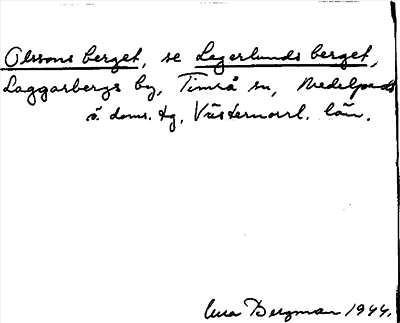 Olssons berget, se Lagerlunds berget,
Laggarbergs by, Timrå sn, Medelpads
ö. doms. tg, Västernorrl. län.
Bergman 1944.